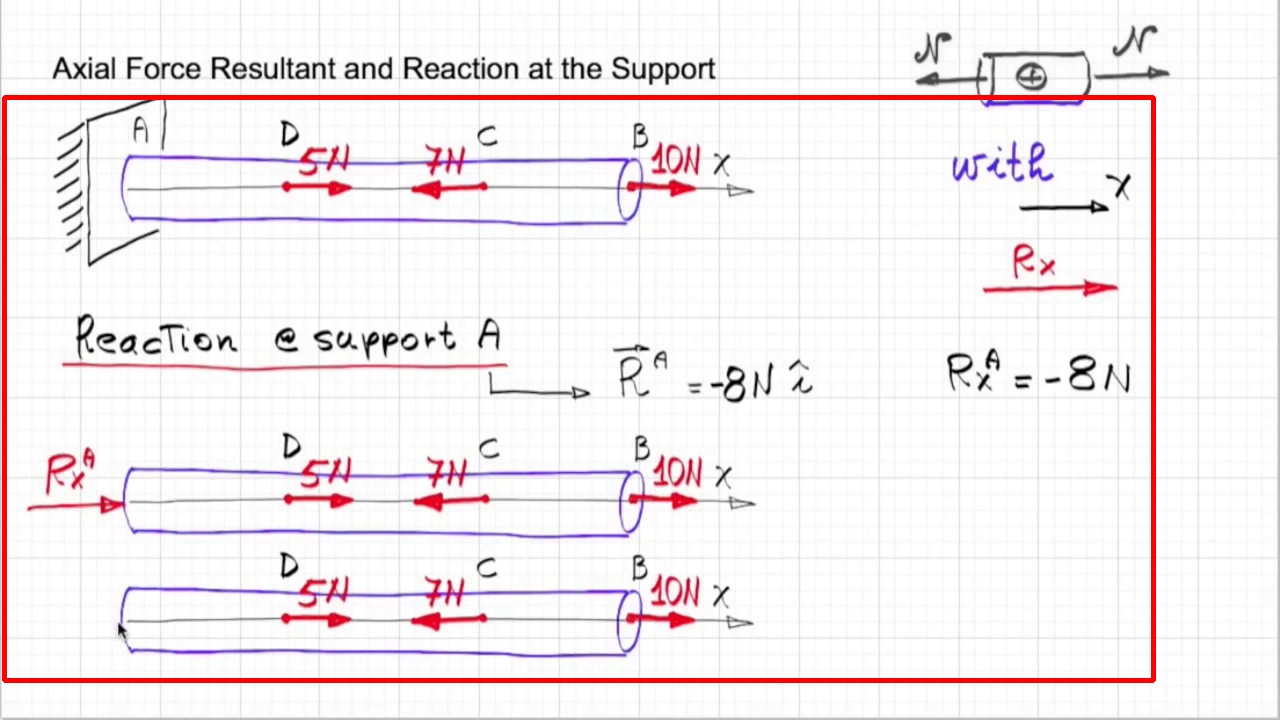 Axial Force Resultant and Reaction at the Support
N N
+
A D C B
5N 7N 10N x
with
x
Rx
Reaction @ support A
R^A = -8N î
Rx^A = -8N
D C B
Rx^A 5N 7N 10N x
D C B
5N 7N 10N x